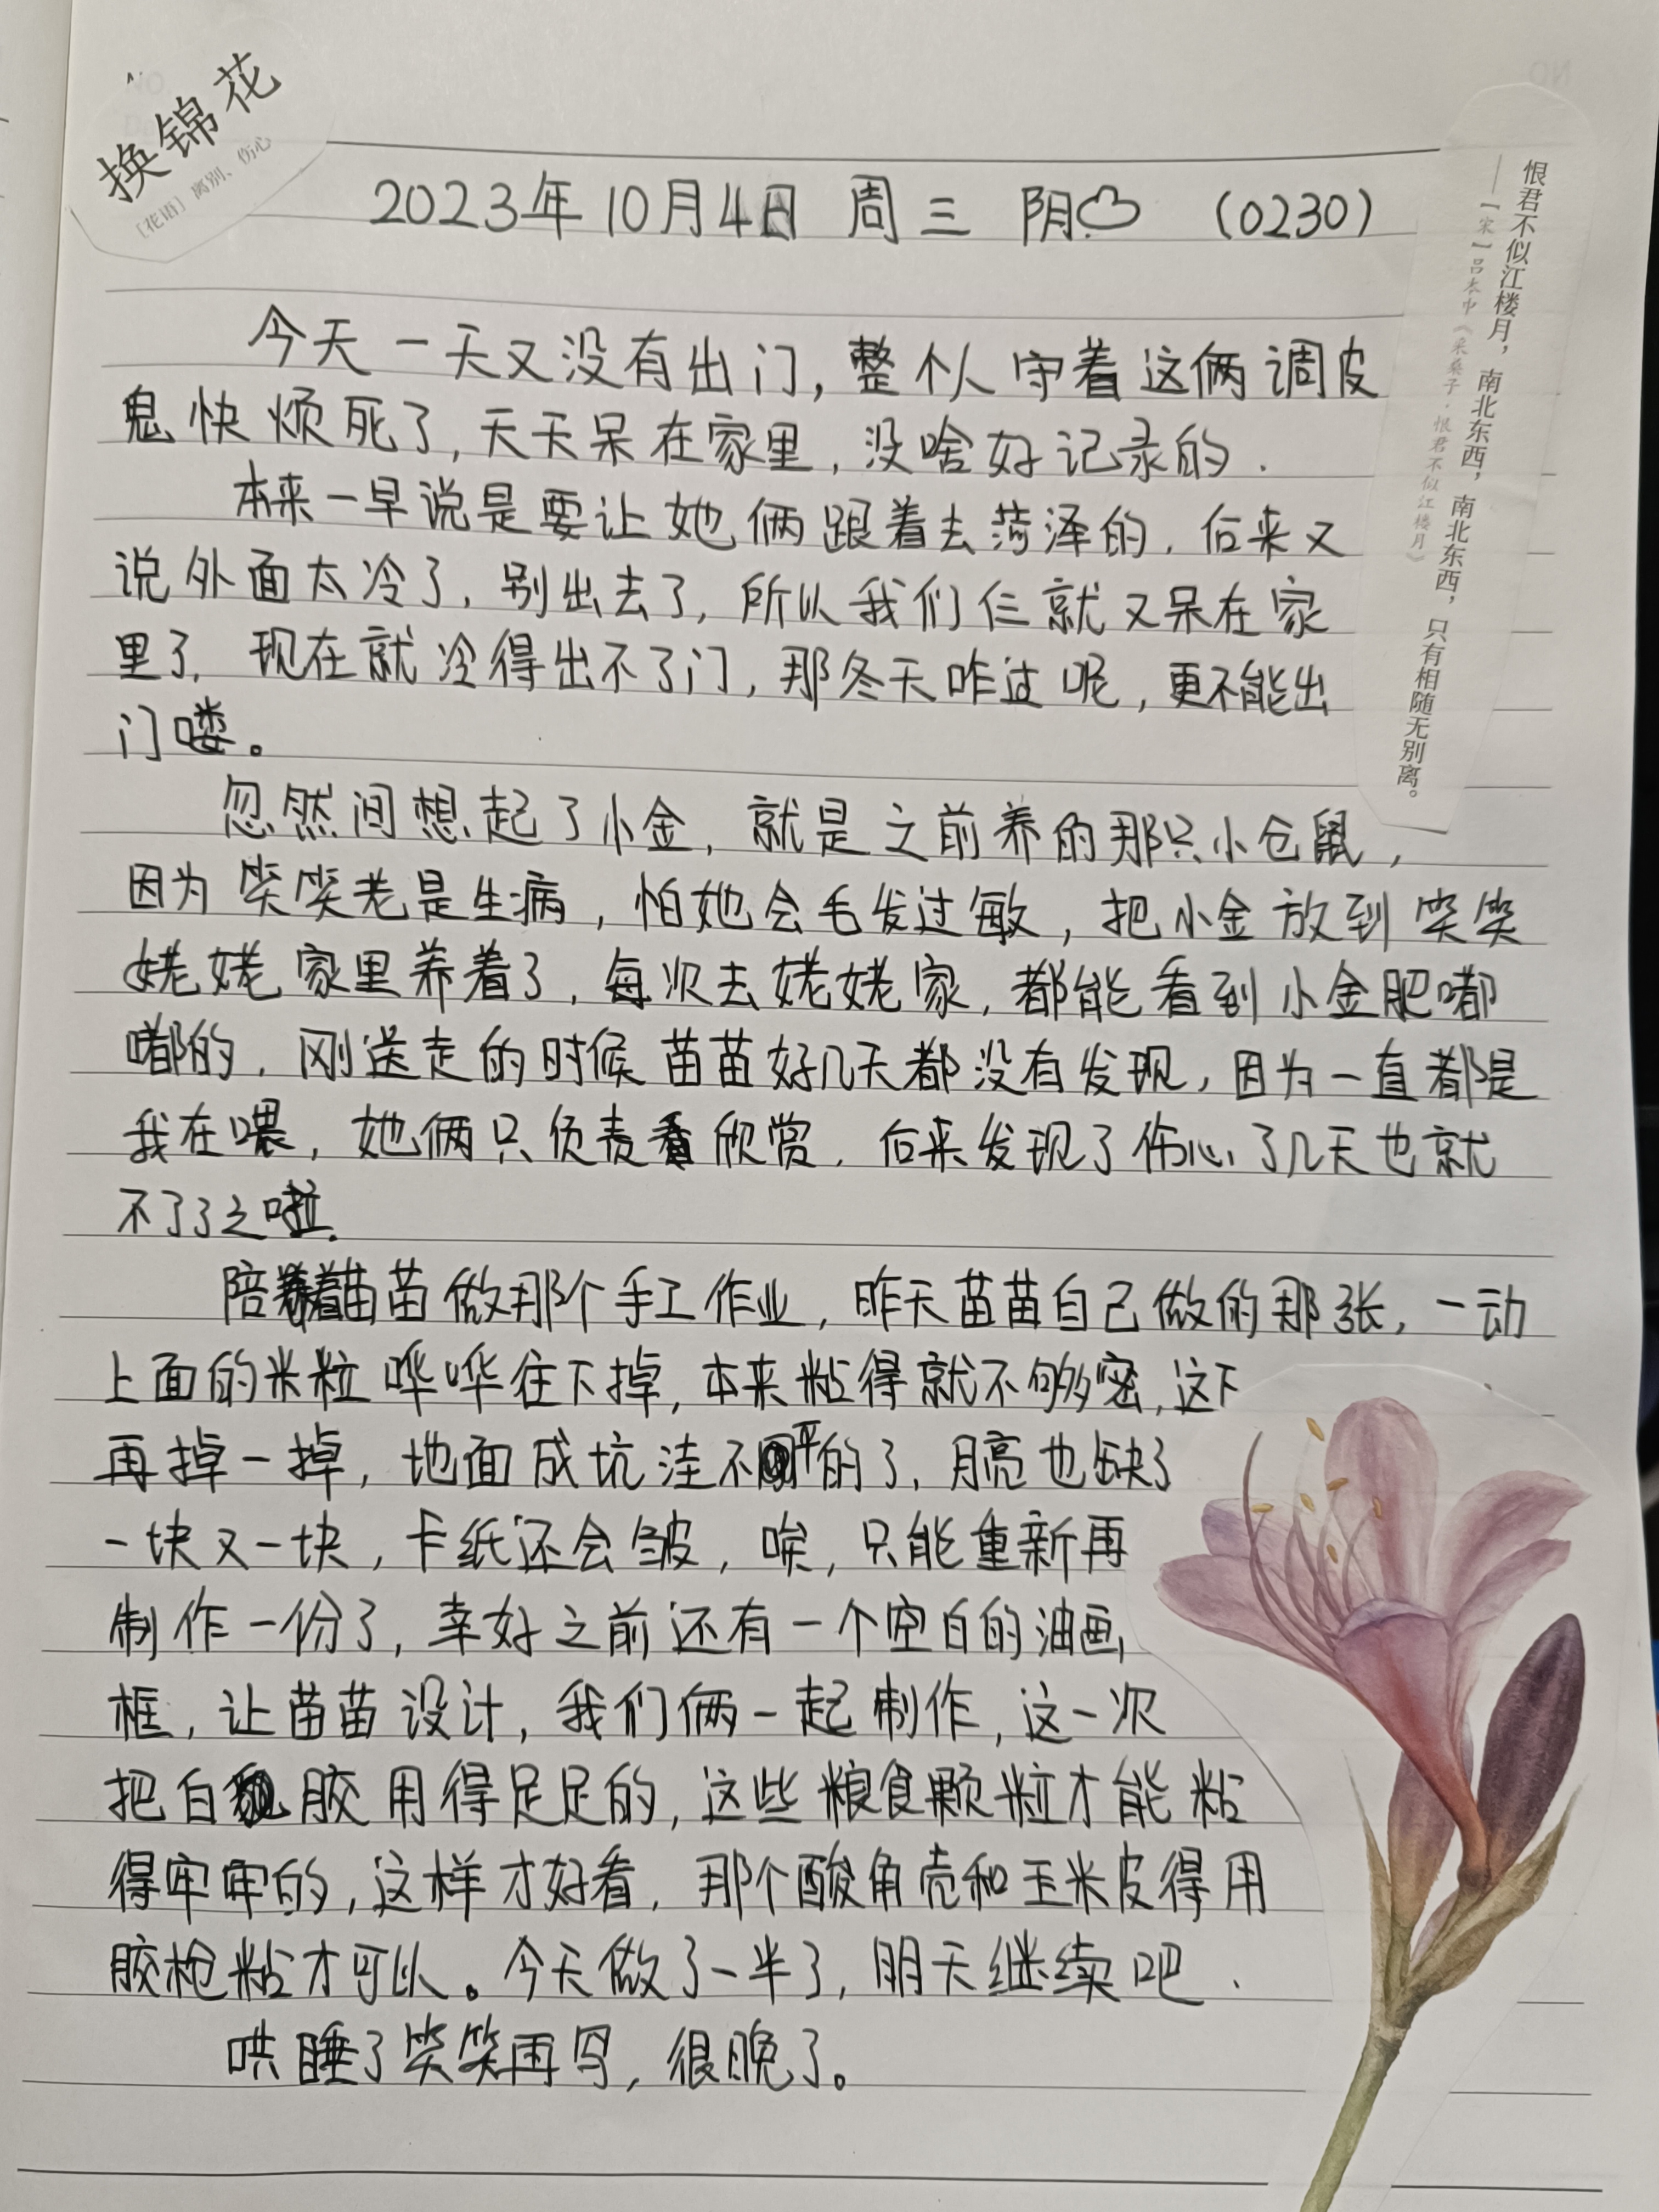 换锦花
[花语] 离别、伤心
2023年10月4日 周三 阴 (0230)
恨君不似江楼月，南北东西，南北东西，只有相随无别离。
——【宋】吕本中《采桑子·恨君不似江楼月》
今天一天又没有出门，整个人守着这俩调皮
鬼快烦死了，天天呆在家里，没啥好记录的．
本来一早说是要让她俩跟着去菏泽的，后来又
说外面太冷了，别出去了，所以我们仨就又呆在家
里了，现在就冷得出不了门，那冬天咋过呢，更不能出
门喽。
忽然间想起了小金，就是之前养的那只小仓鼠，
因为笑笑老是生病，怕她会毛发过敏，把小金放到笑笑
姥姥家里养着了，每次去姥姥家，都能看到小金肥嘟
嘟的，刚送走的时候苗苗好几天都没有发现，因为一直都是
我在喂，她俩只负责欣赏，后来发现了伤心了几天也就
不了了之啦．
陪着苗苗做那个手工作业，昨天苗苗自己做的那张，一动
上面的米粒哗哗往下掉，本来粘得就不够密，这下
再掉一掉，地面成坑洼不平的了，月亮也缺了
一块又一块，卡纸还会皱，唉，只能重新再
制作一份了，幸好之前还有一个空白的油画
框，让苗苗设计，我们俩一起制作，这一次
把白胶用得足足的，这些粮食颗粒才能粘
得牢牢的，这样才好看，那个酸角壳和玉米皮得用
胶枪粘才可以。今天做了一半了，明天继续吧．
哄睡了笑笑再写，很晚了。